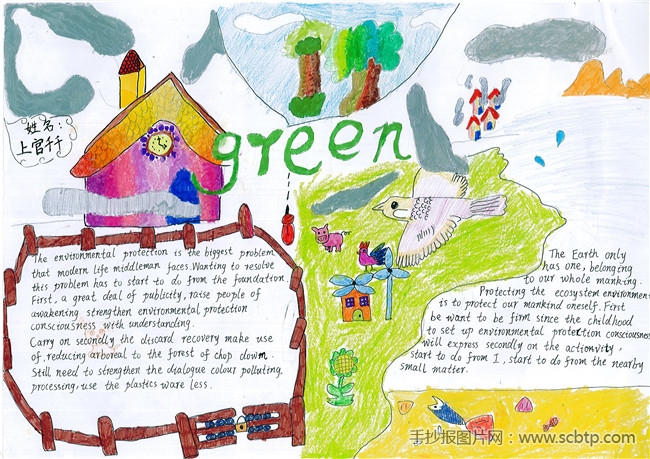 姓名:
上官千千
green
The environmental protection is the biggest problem
that modern life middleman faces. Wanting to resolve
this problem has to start to do from the foundation.
First, a great deal of publicity, raise people of
awakening strengthen environmental protection
consciousness with understanding.
Carry on secondly the discard recovery make use
of, reducing arboreal to the forest of chop down.
Still need to strengthen the dialogue colour polluting
processing, use the plastics ware less.
The Earth only
has one, belonging
to our whole manking.
Protecting the ecosystem environment
is to protect our mankind oneself. First
be want to be firm since the childhood
to set up environmental protection consciousness
will express secondly on the actionvity,
start to do from I, start to do from the nearby
small matter.
手抄报图片网:www.scbtp.com